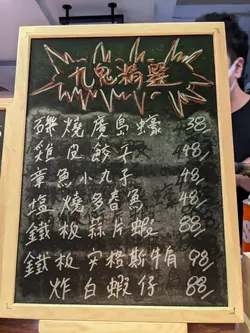 九鬼精選
磯燒廣島蠔 38/
雞皮餃子 48/
章魚小丸子 48/
塩燒多春魚 48/
鐵板蒜片蝦 88/
鐵板安格斯牛角 98/
炸白蝦仔 88/